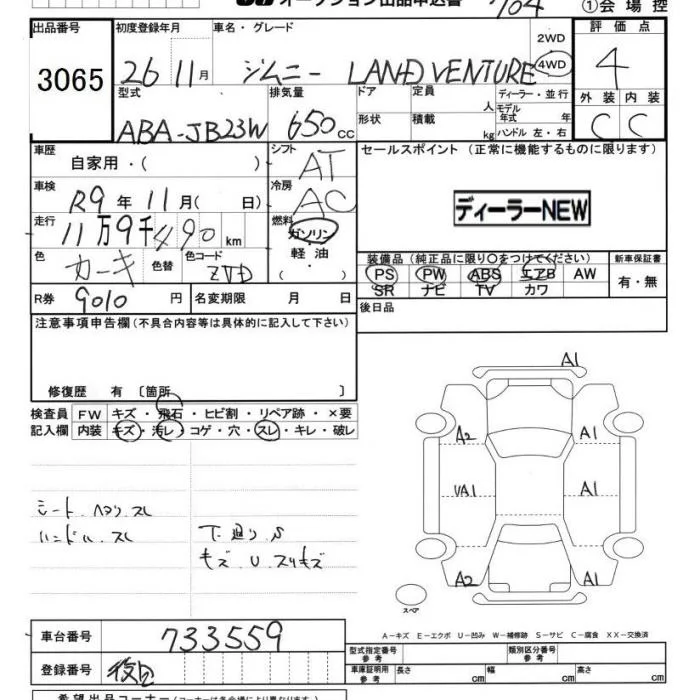 オークション出品申込書 704 ①会場控
出品番号 初度登録年月 車名・グレード 評価点
3065 26 11月 ジムニー LAND VENTURE 2WD 4WD 4
型式 排気量 ドア 定員 ディーラー・並行 外装 内装
人 モデル年式 年
ABA-JB23W 650cc 形状 積載 kg ハンドル 左・右 C C
車歴 シフト セールスポイント (正常に機能するものに限ります)
自家用・( ) AT
車検 冷房
R9年11月( 日) AC ディーラーNEW
走行 燃料
11万9千490km ガソリン
軽油
・( )
色 色替 色コード 装備品 (純正品に限り○をつけてください) 新車保証書
ガーキ ZVD PS PW ABS エアB AW 有・無
SR ナビ TV カワ
R券 9010円 名変期限 月 日 後日品
注意事項申告欄 (不具合内容等は具体的に記入して下さい)
修復歴 有 〔箇所 〕
検査員 FW キズ・飛石・ヒビ割・リペア跡・×要
記入欄 内装 キズ・汚レ・コゲ・穴・スレ・キレ・破レ
シート.ヘタリ.スレ
ハンドル.スレ
下廻り.S
キズ.U.スリキズ
A1
A2 A1
UA1 A1
A2 A1
スペア
A-キズ E-エクボ U-凹み W-補修跡 S-サビ C-腐食 XX-交換済
車台番号 733559
型式指定番号 参考 類別区分番号 参考
登録番号
車庫証明用 参考 長さ cm 幅 cm 高さ cm
希望出品コーナー